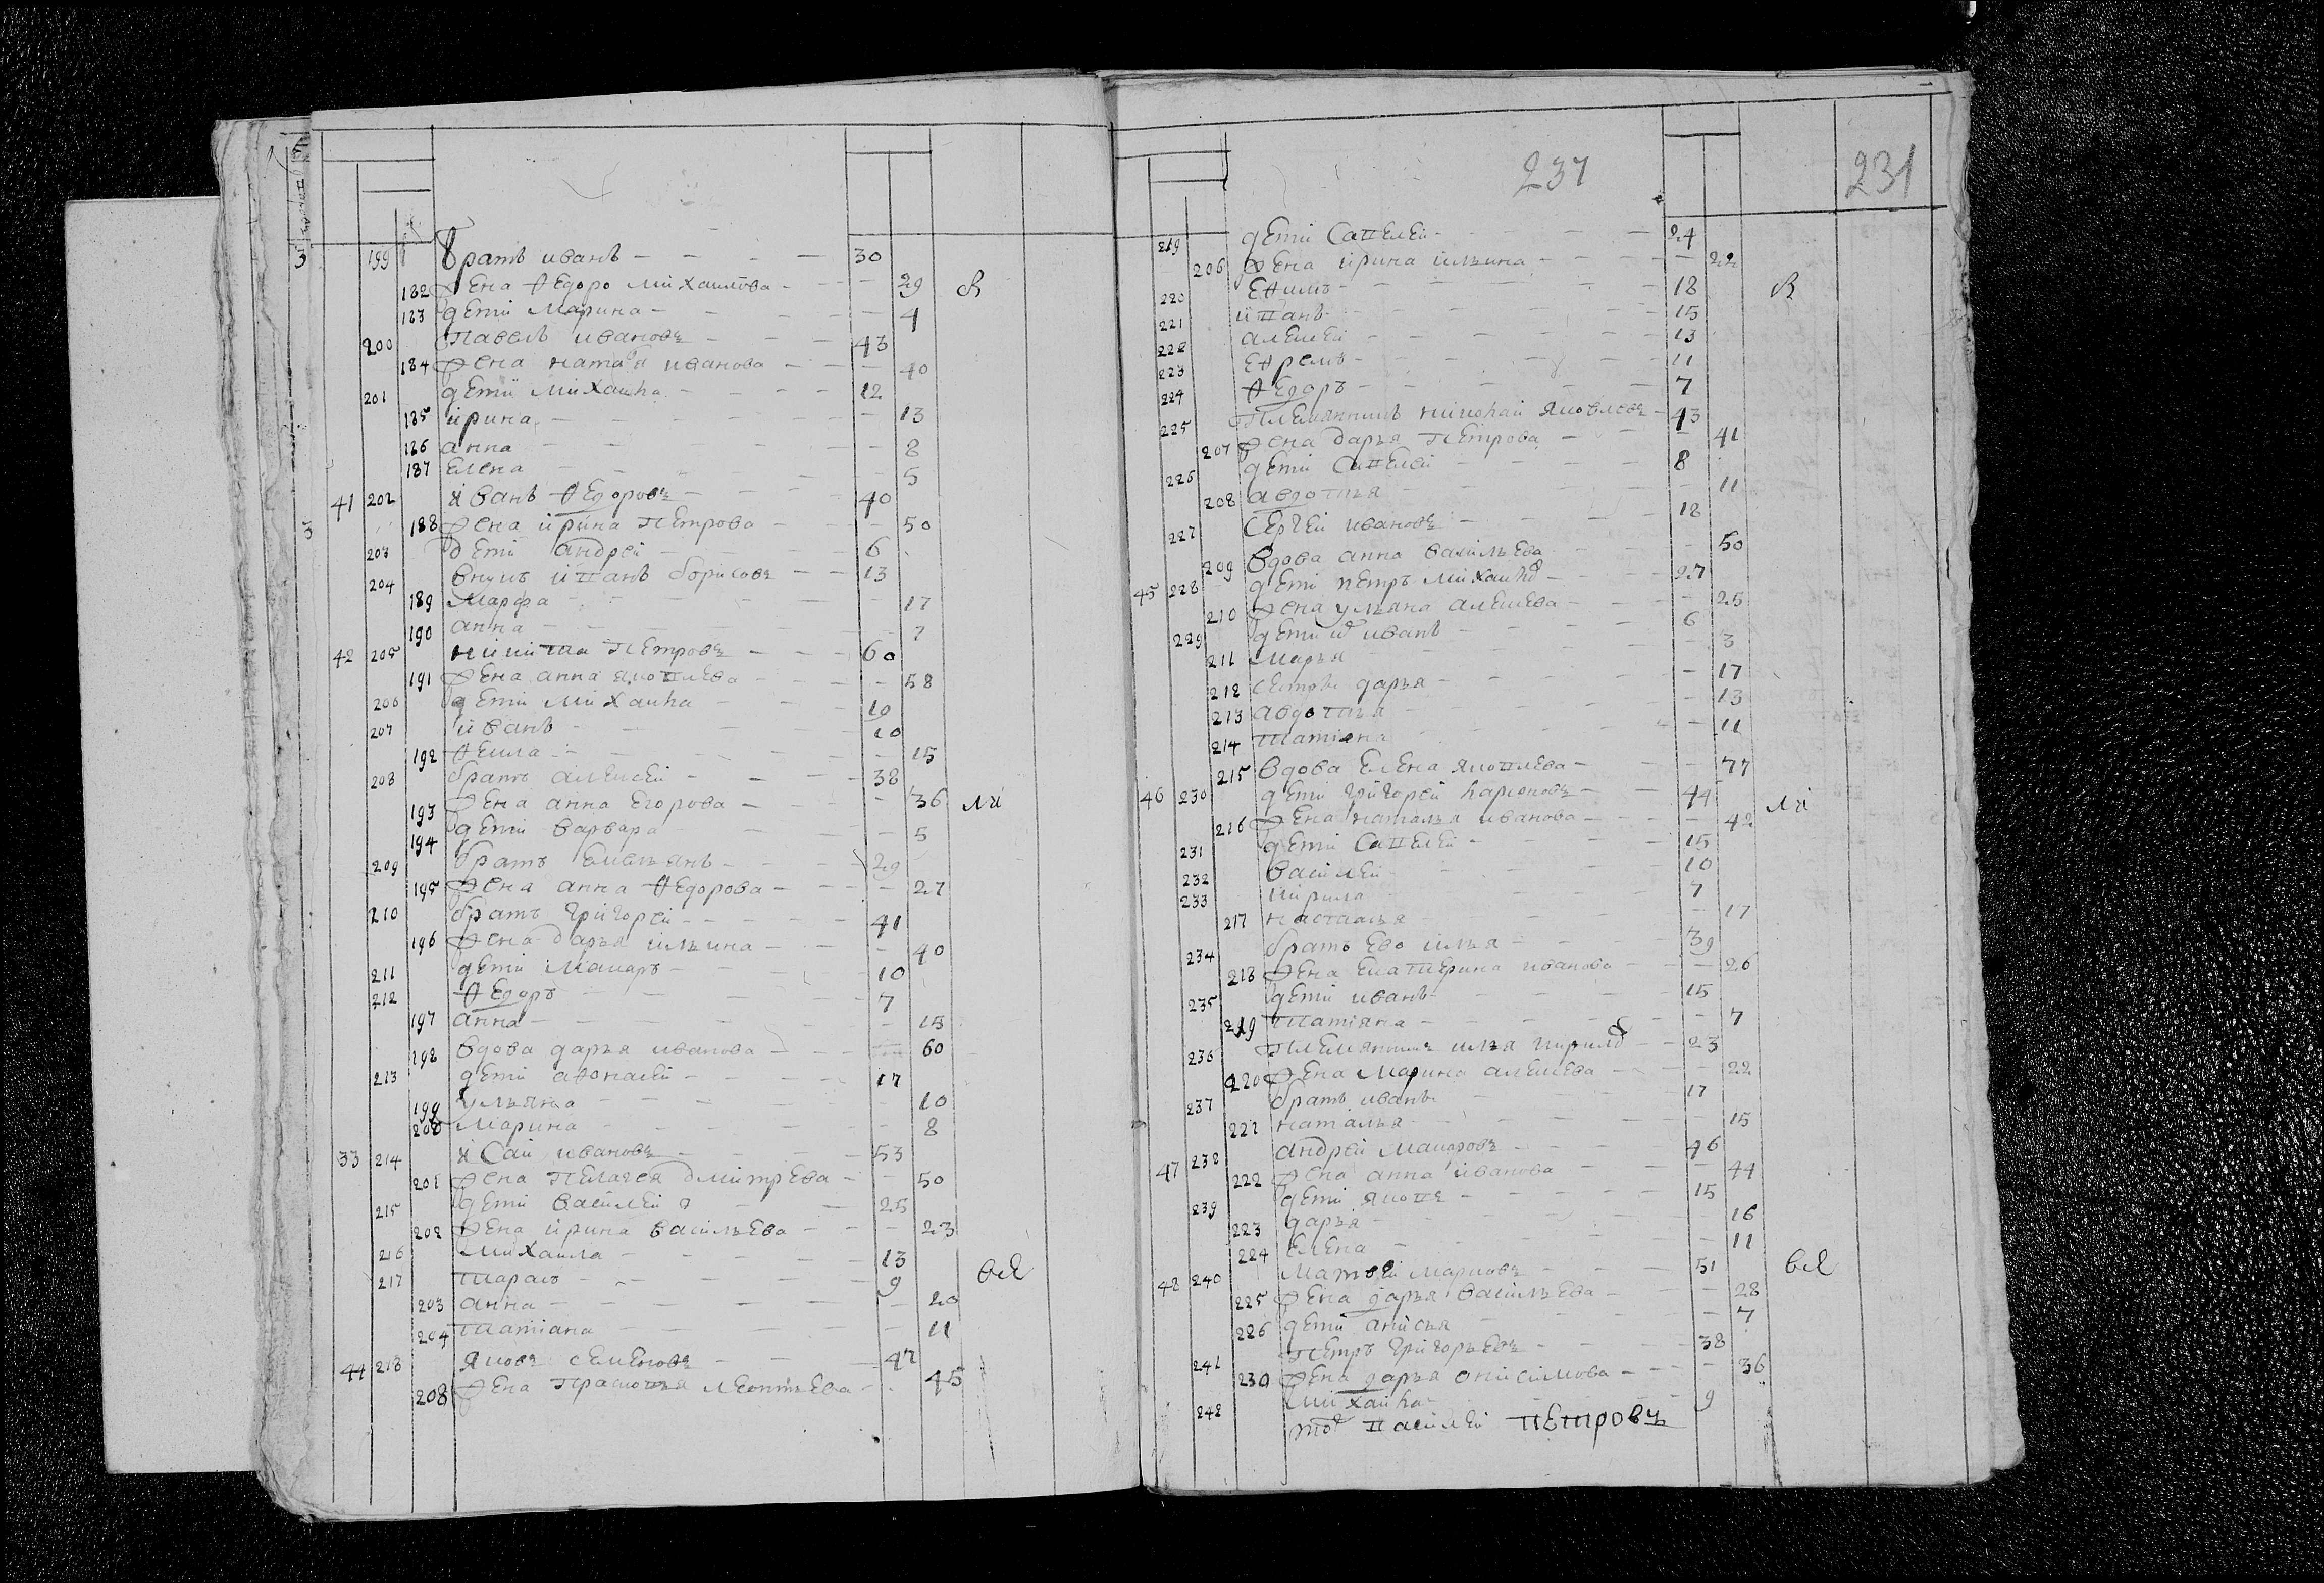 199 братъ иванъ 30
182 жена Федоро михаилова 29
183 дети марина 4
200 павелъ ивановъ 43
184 жена иванова 40
201 дети михаила 12
185 ирина 13
186 анна 8
187 елена 5
41 202 иванъ Федоровъ 40
188 жена ирина петрова 50
203 дети андрей 6
204 внукъ борисовъ 13
189 марфа 17
190 анна 7
42 205 никита петровъ 60
191 жена анна яковлева 58
206 дети михаила 10
207 иванъ 10
192 Фекла 15
208 братъ алексей 38
193 жена анна егорова 36
194 дети варвара 5
209 братъ емельянъ 29
195 жена анна Федорова 27
210 братъ григорей 41
196 жена дарья ильина 40
211 дети макаръ 10
212 Федоръ 7
197 анна 15
198 вдова дарья иванова 60
213 дети аФонасей 17
199 ульяна 10
200 марина 8
33 214 исай ивановъ 53
201 жена пелагея дмитрева 50
215 дети василей 25
202 жена ирина васильева 23
216 михаила 13
217 тарасъ 9
203 анна 20
204 татиана 11
44 218 яковъ семеновъ 47
208 жена прасковья леонтьева 45
237 231
219 дети савелей 24
206 жена ирина ильина 22
220 еФимъ 18
221 15
222 алексей 13
223 еФремъ 11
224 Федоръ 7
225 племянникъ николай яковлевъ 43
207 жена дарья петрова 41
226 дети савелей 8
208 авдотья 11
227 сергей ивановъ 18
209 вдова анна васильева 50
45 228 дети петръ михаило 27
210 жена ульяна алексева 25
229 дети иванъ 6
211 марья 3
212 сестры дарья 17
213 авдотья 13
214 татиана 11
215 вдова елена яковлева 77
46 230 дети григорей ларионовъ 44
216 жена наталья иванова 42
231 дети савелей 15
232 василей 10
233 кирила 7
217 настасья 17
234 братъ ево илья 39
218 жена екатерина иванова 26
235 дети иванъ 15
219 татияна 7
236 племянникъ илья кирило 23
220 жена марина алексева 22
237 братъ иванъ 17
221 наталья 15
47 238 андрей макаровъ 46
222 жена анна иванова 44
239 дети яковъ 15
223 дарья 16
224 елена 11
48 240 матвей марковъ 51
225 жена дарья васильева 28
226 дети анисья 7
241 петръ григорьевъ 38
230 жена дарья онисимова 36
242 михайла 9
василей петровъ